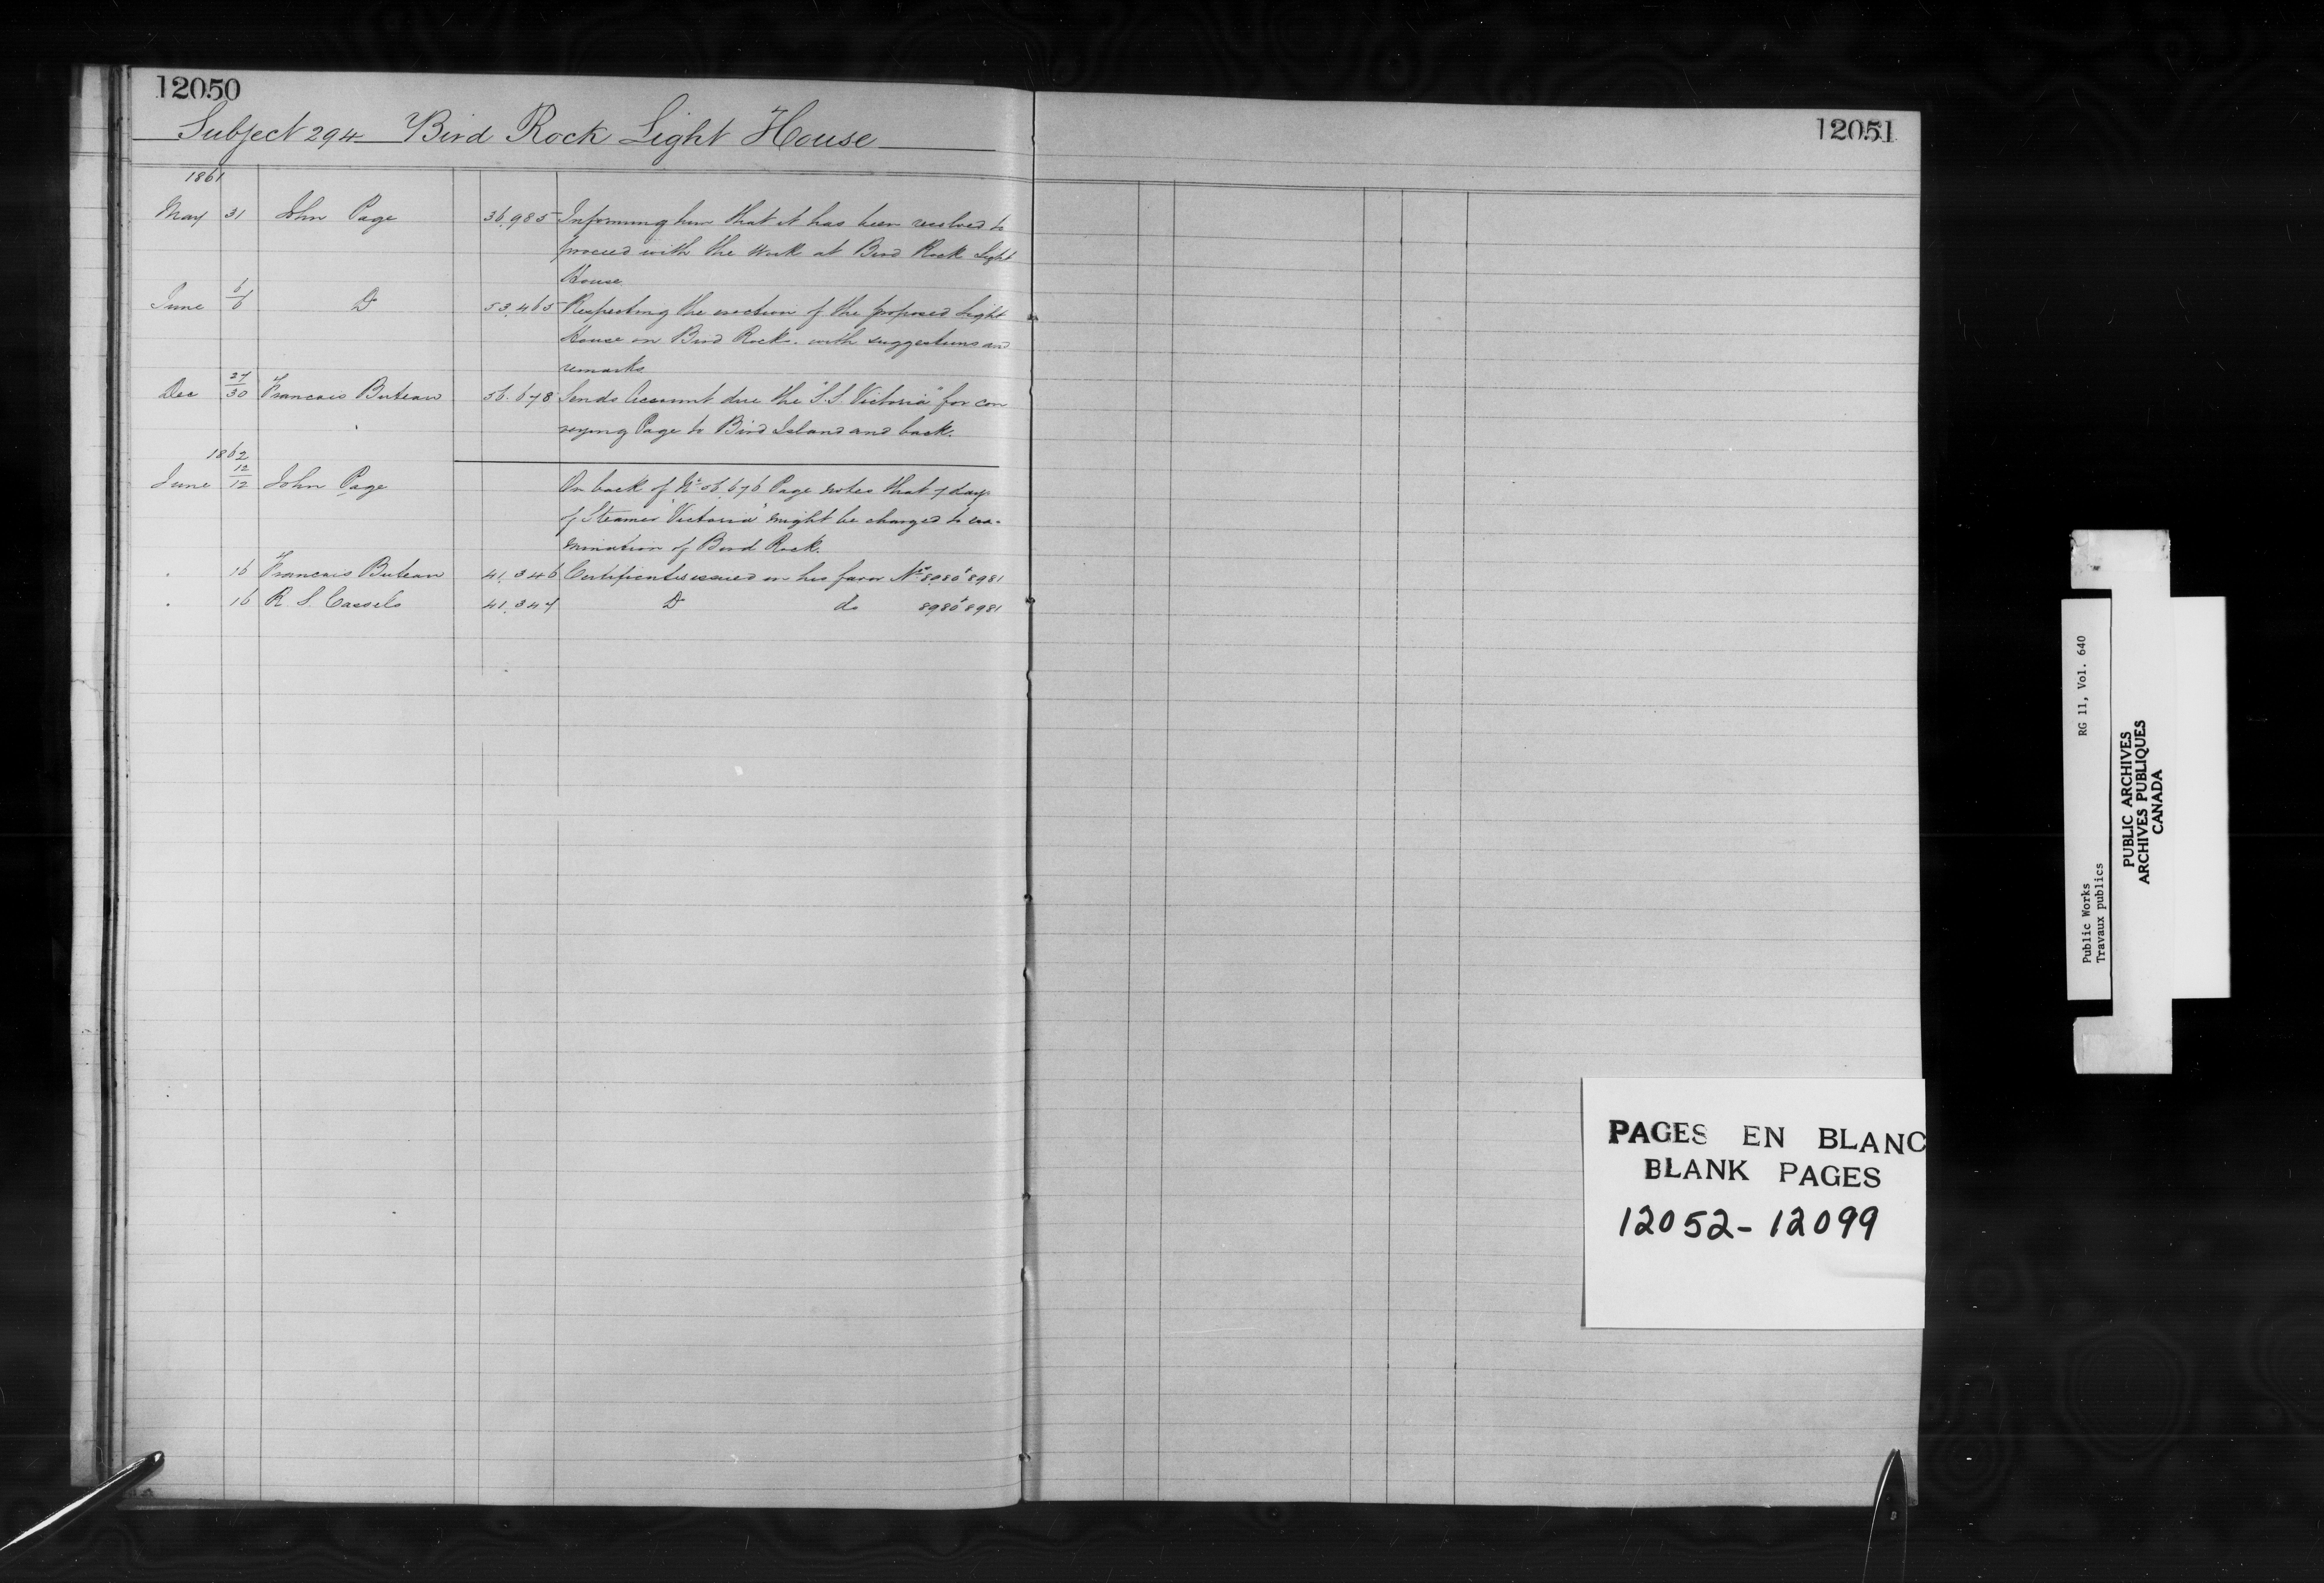 12050
Subject 294 Bird Rock Light House
12051
1861
May 31 John Page 36,985 Informing him that it has been resolved to
proceed with the Work at Bird Rock Light
House.
June 6/6 Do 53,465 Respecting the erection of the proposed Light
House on Bird Rock. with suggestions and
remarks
Dec 27/30 Francois Buteau 56.678 Sends Account due the "S.S. Victoria" for con
veying Page to Bird Island and back.
1862
June 12/12 John Page On back of No 56,676 Page notes that 7 days
of Steamer "Victoria" might be charged to exa-
mination of Bird Rock.
" 16 Francois Buteau 41,346 Certificates issued in his favor Nos 8980 & 8981
" 16 R. S. Cassels 41,347 Do do 8980 & 8981
PAGES EN BLANC
BLANK PAGES
12052-12099
Public Works RG 11, Vol. 640
Travaux publics
PUBLIC ARCHIVES
ARCHIVES PUBLIQUES
CANADA